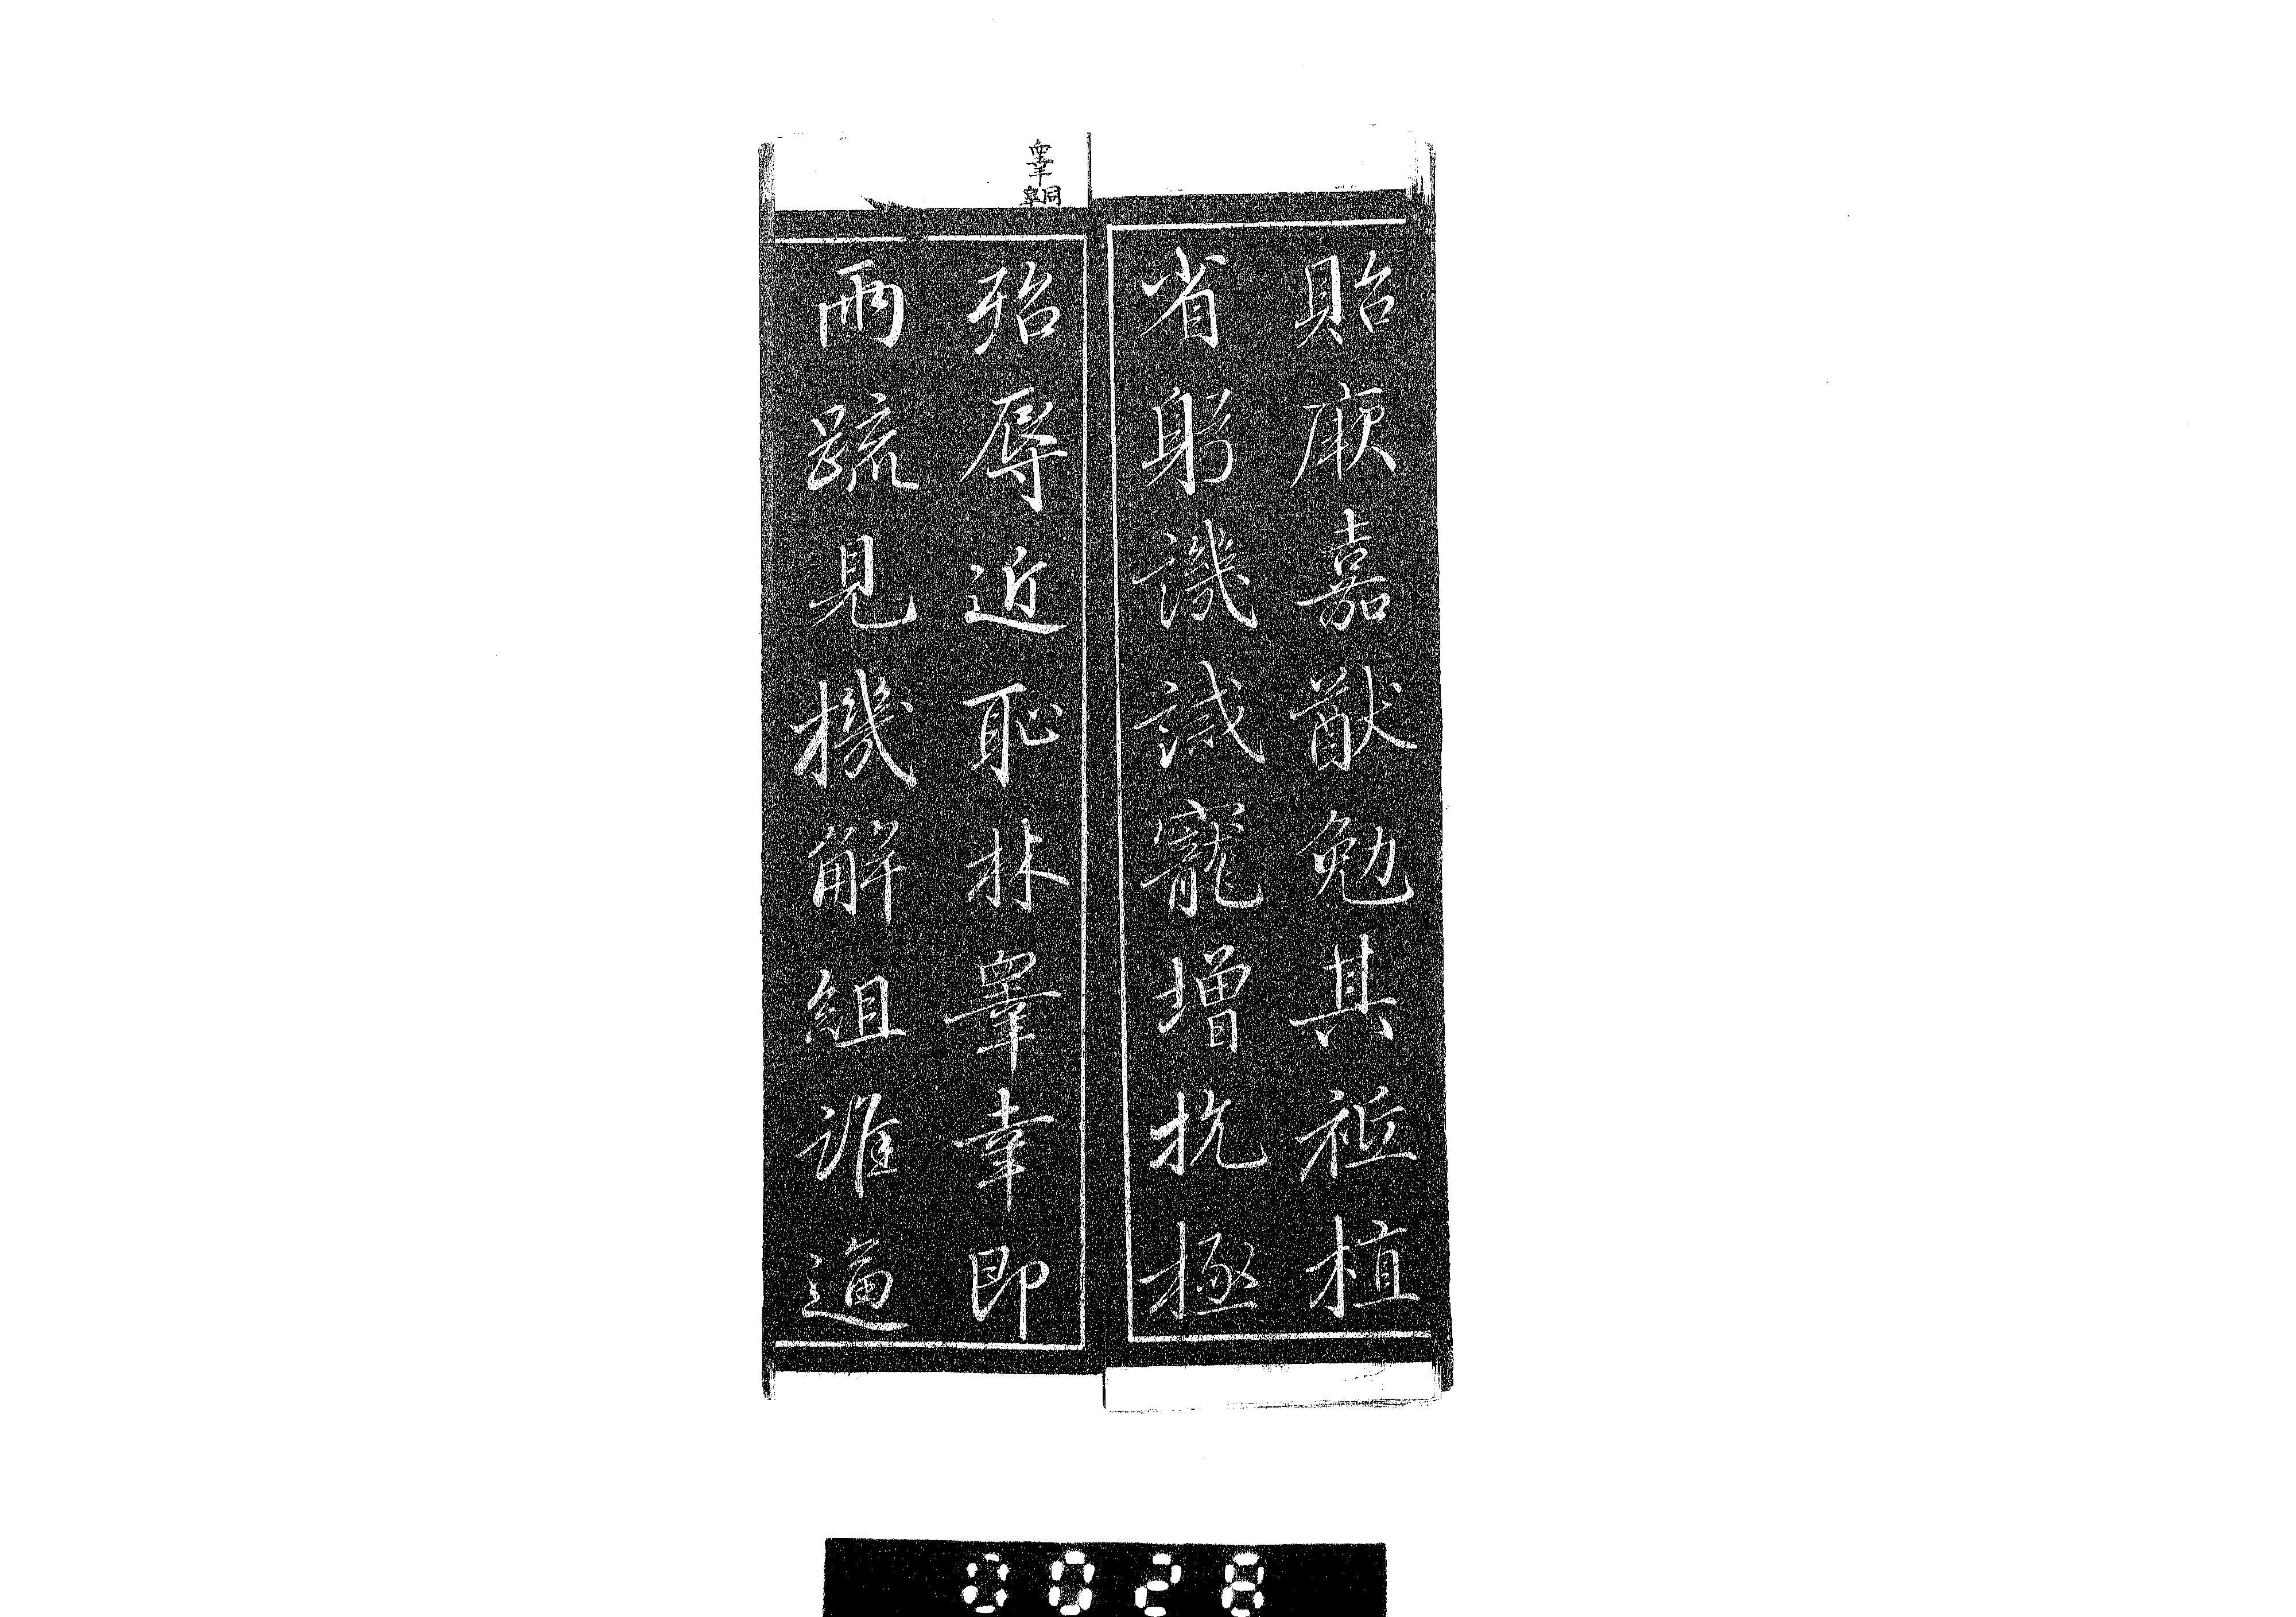 貽厥嘉猷勉其祗植
省躬譏誡寵增抗極
殆辱近恥林睾幸即
兩疏見機解組誰逼
睾
皐同
0028